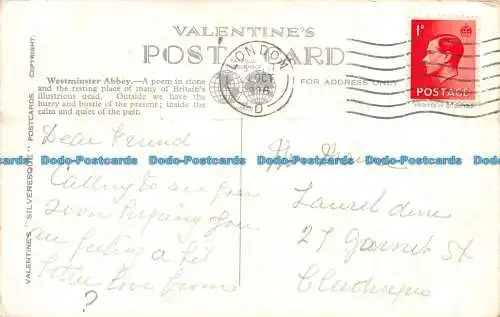 VALENTINE'S
POST CARD
LONDON
OCT
D
1D
POSTAGE
FOR ADDRESS ONLY
VALENTINE'S "SILVERESQUE" POSTCARDS. COPYRIGHT.
Westminster Abbey.—A poem in stone
and the resting place of many of Britain's
illustrious dead. Outside we have the
hurry and bustle of the present; inside the
calm and quiet of the past.
Dear Friend
Calling to see you
soon hoping you
are feeling a bit
better love from
?
Laurel
27 Garnet St
Dodo-Postcards Dodo-Postcards Dodo-Postcards Dodo-Postcards Dodo-Postcards
Dodo-Postcards Dodo-Postcards Dodo-Postcards Dodo-Postcards Dodo-Postcards